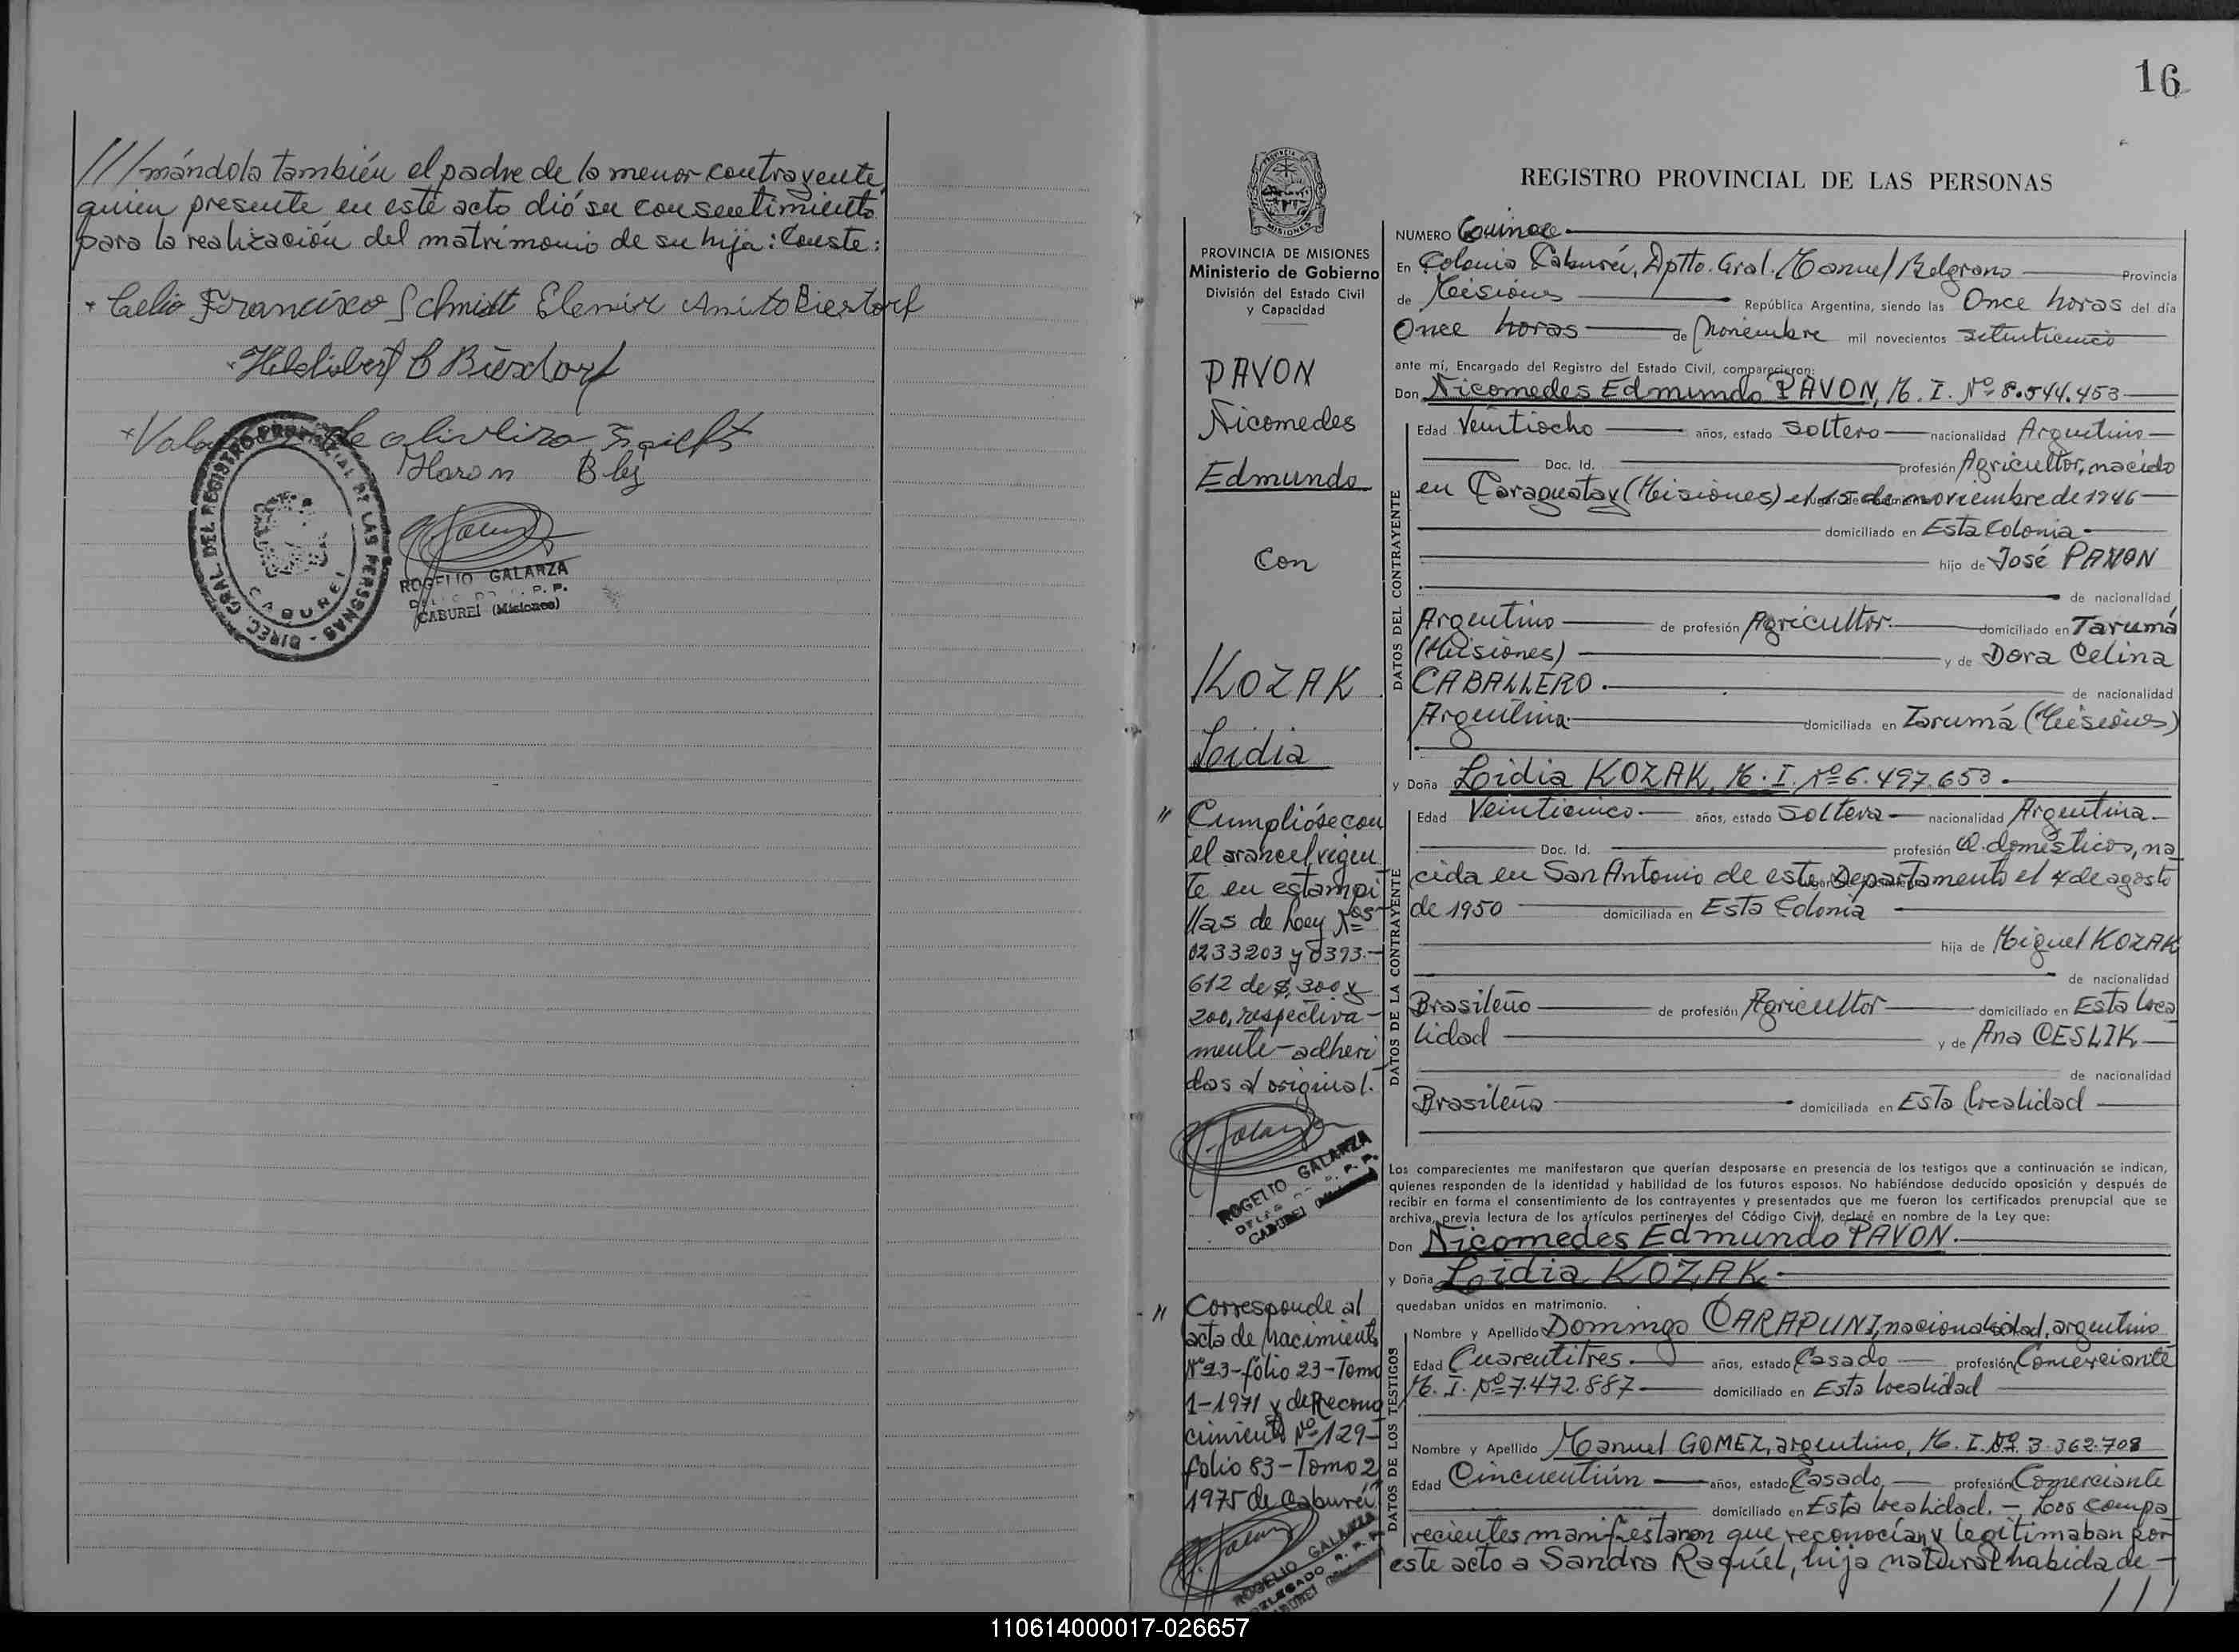 ///mándola también el padre de la menor contrayente,
quien presente en este acto dió su consentimiento
para la realización del matrimonio de su hija: Conste:
Celio Francisco Schmidt Elenir Anita Bierdorf
Hildibert B Bierdorf
de oliveira
DIREC. GRAL DEL REGISTRO PROVINCIAL DE LAS PERSONAS
CABUREI
ROGELIO GALARZA
CABUREI (Misiones)
16
PROVINCIA DE MISIONES
Ministerio de Gobierno
División del Estado Civil
y Capacidad
PAVON
Nicomedes
Edmundo
Con
KOZAK
Lidia
" Cumplióse con
el arancel vigen
te en estampi
llas de Ley Nos
0233203 y 0393.-
612 de $ 300 y
200, respectiva-
mente-adheri
das al original.
ROGELIO GALARZA
CABUREI (Misiones)
" Corresponde al
acta de nacimiento
Nº 23-folio 23-Tomo
1-1971 y de Recono
cimiento Nº 129-
folio 83-Tomo 2
1975 de Caburei
ROGELIO GALARZA
DELEGADO R. P. P.
CABUREI (Misiones)
REGISTRO PROVINCIAL DE LAS PERSONAS
NUMERO Quince
En Colonia Caburéi, Dptto. Gral. Manuel Belgrano Provincia
de Misiones República Argentina, siendo las Once horas del día
Once horas de Noviembre mil novecientos setenticinco
ante mí, Encargado del Registro del Estado Civil, comparecieron:
Don Nicomedes Edmundo PAVON, M. I. Nº 8.544.453
DATOS DEL CONTRAYENTE
Edad Veintiocho años, estado Soltero nacionalidad Argentino
Doc. Id. profesión Agricultor, nacido
en Caraguatay (Misiones) el 15 de noviembre de 1946
domiciliado en Esta Colonia
hijo de José PAVON
de nacionalidad
Argentino de profesión Agricultor domiciliado en Tarumá
(Misiones) y de Dora Celina
CABALLERO. de nacionalidad
Argentina domiciliada en Tarumá (Misiones)
y Doña Lidia KOZAK, M. I. Nº 6.497.653.
DATOS DE LA CONTRAYENTE
Edad Veinticinco años, estado Soltera nacionalidad Argentina
Doc. Id. profesión Q. domésticos, na
cida en San Antonio de este Departamento el 4 de agosto
de 1950 domiciliada en Esta Colonia
hija de Miguel KOZAK
de nacionalidad
Brasileño de profesión Agricultor domiciliado en Esta loca
lidad y de Ana CESLIK
de nacionalidad
Brasileña domiciliada en Esta localidad
Los comparecientes me manifestaron que querían desposarse en presencia de los testigos que a continuación se indican,
quienes responden de la identidad y habilidad de los futuros esposos. No habiéndose deducido oposición y después de
recibir en forma el consentimiento de los contrayentes y presentados que me fueron los certificados prenupcial que se
archiva, previa lectura de los artículos pertinentes del Código Civil, declaré en nombre de la Ley que:
Don Nicomedes Edmundo PAVON.
y Doña Lidia KOZAK
quedaban unidos en matrimonio.
DATOS DE LOS TESTIGOS
Nombre y Apellido Domingo CARAPUNI, nacionalidad, argentino
Edad Cuarentitres años, estado Casado profesión Comerciante
M. I. Nº 7.472.887 domiciliado en Esta localidad
Nombre y Apellido Manuel GOMEZ, argentino, M. I. Nº 3.362.708
Edad Cincuentiún años, estado Casado profesión Comerciante
domiciliado en Esta localidad. - Los compa
recientes manifestaron que reconocían y legitimaban por
este acto a Sandra Raquel, hija natural habida de -
///
110614000017-026657